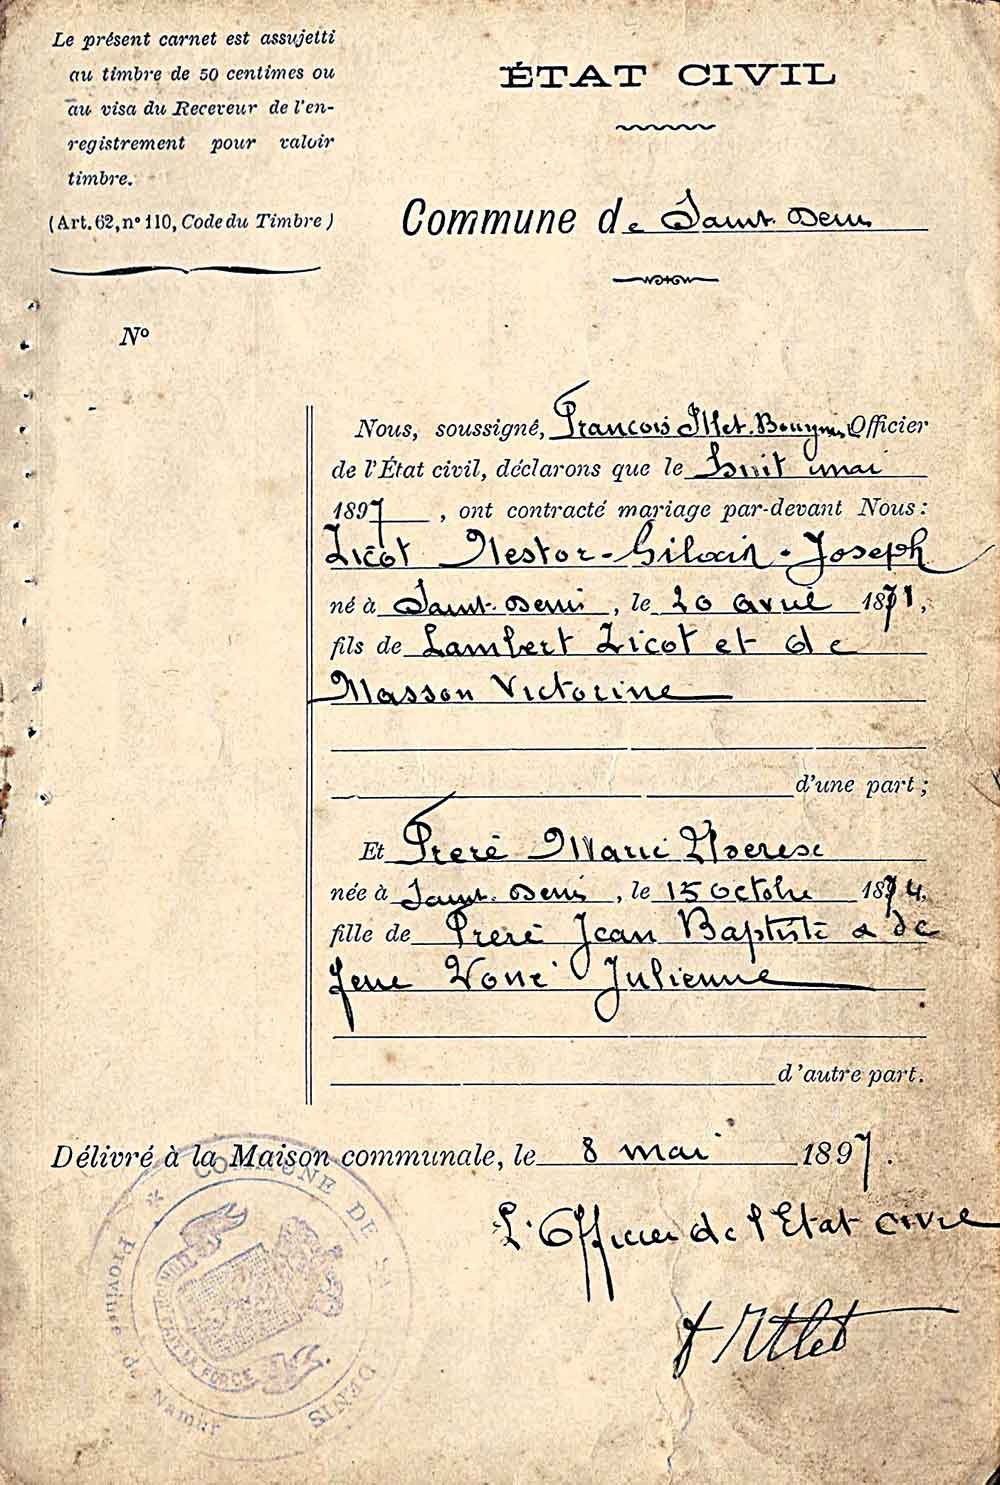 Le présent carnet est assujetti
au timbre de 50 centimes ou
au visa du Receveur de l'en-
registrement pour valoir
timbre.
(Art. 62, n° 110, Code du Timbre)
ÉTAT CIVIL
Commune de Saint-Denis
N°
Nous, soussigné, François Officier
de l'État civil, déclarons que le huit mai
1897, ont contracté mariage par-devant Nous:
Licot Nestor-Gilain-Joseph
né à Saint-Denis, le 20 avril 1871,
fils de Lambert Licot et de
Masson Victorine
d'une part;
Et Preré Marie Therese
née à Saint-Denis, le 15 octobre 1874,
fille de Preré Jean Baptiste & de
Julienne
d'autre part.
Délivré à la Maison communale, le 8 mai 1897.
L'Officier de l'Etat civil
COMMUNE DE SAINT DENIS
Province de Namur
L'UNION FAIT LA FORCE